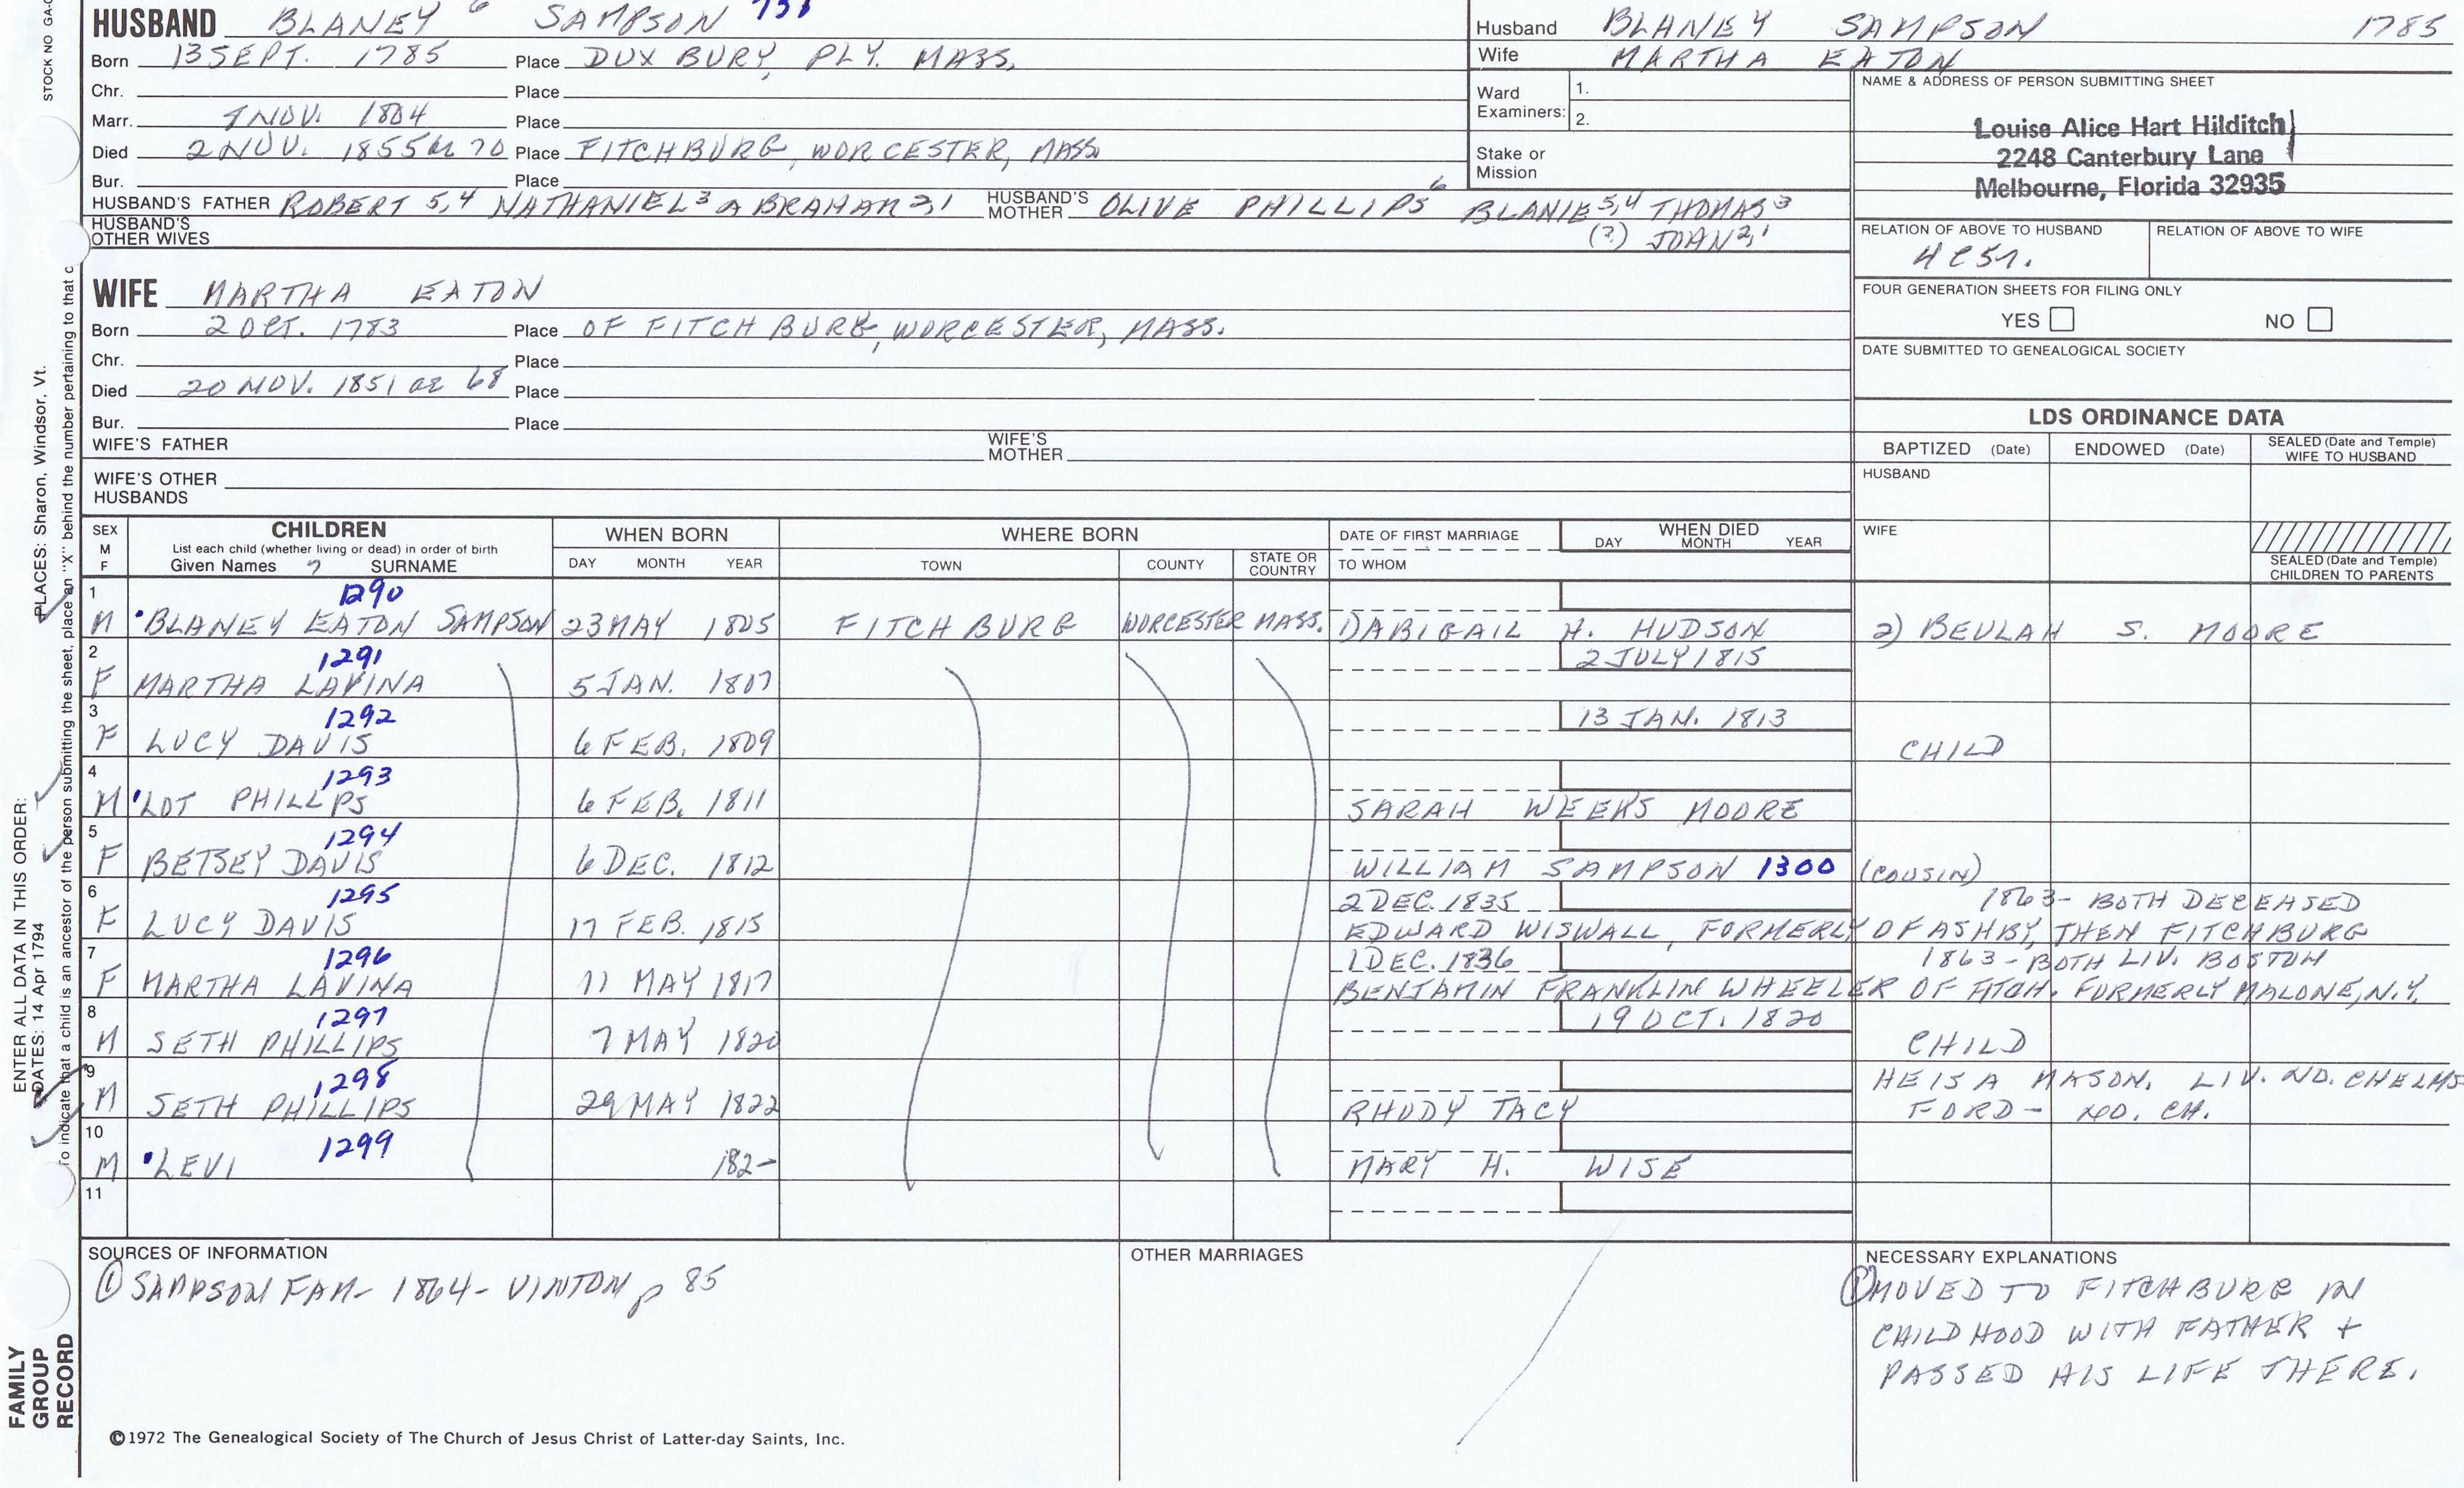 HUSBAND BLANEY 6 SAMPSON
Born 13 SEPT. 1785 Place DUXBURY, PLY. MASS.
Chr. Place
Marr. 7 NOV. 1804 Place
Died 2 NOV. 1855 ae 70 Place FITCHBURG, WORCESTER, MASS
Bur. Place
HUSBAND'S FATHER ROBERT 5,4 NATHANIEL 3 ABRAHAM 2,1 HUSBAND'S MOTHER OLIVE PHILLIPS 6 BLANIE 5,4 THOMAS 3
(?) JOHN 2,1
HUSBAND'S OTHER WIVES
Husband BLANEY SAMPSON 1785
Wife MARTHA EATON
Ward Examiners: 1.
2.
Stake or Mission
NAME & ADDRESS OF PERSON SUBMITTING SHEET
Louise Alice Hart Hilditch
2248 Canterbury Lane
Melbourne, Florida 32935
RELATION OF ABOVE TO HUSBAND RELATION OF ABOVE TO WIFE
4C5r.
FOUR GENERATION SHEETS FOR FILING ONLY
YES NO
DATE SUBMITTED TO GENEALOGICAL SOCIETY
WIFE MARTHA EATON
Born 2 OCT. 1783 Place OF FITCHBURG, WORCESTER, MASS.
Chr. Place
Died 20 NOV. 1851 ae 68 Place
Bur. Place
WIFE'S FATHER WIFE'S MOTHER
WIFE'S OTHER HUSBANDS
LDS ORDINANCE DATA
BAPTIZED (Date) ENDOWED (Date) SEALED (Date and Temple) WIFE TO HUSBAND
HUSBAND
WIFE
SEALED (Date and Temple) CHILDREN TO PARENTS
SEX M F CHILDREN WHEN BORN WHERE BORN DATE OF FIRST MARRIAGE WHEN DIED
List each child (whether living or dead) in order of birth
Given Names 7 SURNAME DAY MONTH YEAR TOWN COUNTY STATE OR COUNTRY TO WHOM DAY MONTH YEAR
1 1290
M BLANEY EATON SAMPSON 23 MAY 1805 FITCHBURG WORCESTER MASS. 1) ABIGAIL H. HUDSON 2) BEULAH S. MOORE
2 1291 2 JULY 1815
F MARTHA LAVINA 5 JAN. 1807
3 1292 13 JAN. 1813
F LUCY DAVIS 6 FEB. 1809 CHILD
4 1293
M LOT PHILLPS 6 FEB. 1811 SARAH WEEKS MOORE
5 1294
F BETSEY DAVIS 6 DEC. 1812 WILLIAM SAMPSON 1300 (COUSIN)
6 1295 2 DEC. 1835 1863- BOTH DECEASED
F LUCY DAVIS 17 FEB. 1815 EDWARD WISWALL, FORMERLY OF ASHBY, THEN FITCHBURG
7 1296 1 DEC. 1836 1863 - BOTH LIV. BOSTON
F MARTHA LAVINA 11 MAY 1817 BENJAMIN FRANKLIN WHEELER OF FITCH. FORMERLY MALONE, N.Y.
8 1297 19 OCT. 1820
M SETH PHILLIPS 7 MAY 1820 CHILD
9 1298 HE IS A MASON. LIV. NO. CHELMS
M SETH PHILLIPS 29 MAY 1822 RHODY TACY FORD - NO. CH.
10 1299
M LEVI 182- MARY H. WISE
11
SOURCES OF INFORMATION
① SAMPSON FAM- 1864- VINTON p 85
OTHER MARRIAGES
NECESSARY EXPLANATIONS
① MOVED TO FITCHBURG IN
CHILDHOOD WITH FATHER +
PASSED HIS LIFE THERE.
©1972 The Genealogical Society of The Church of Jesus Christ of Latter-day Saints, Inc.
STOCK NO GA-
ENTER ALL DATA IN THIS ORDER:
DATES: 14 Apr 1794
PLACES: Sharon, Windsor, Vt.
To indicate that a child is an ancestor of the person submitting the sheet, place an "X" behind the number pertaining to that c
FAMILY
GROUP
RECORD